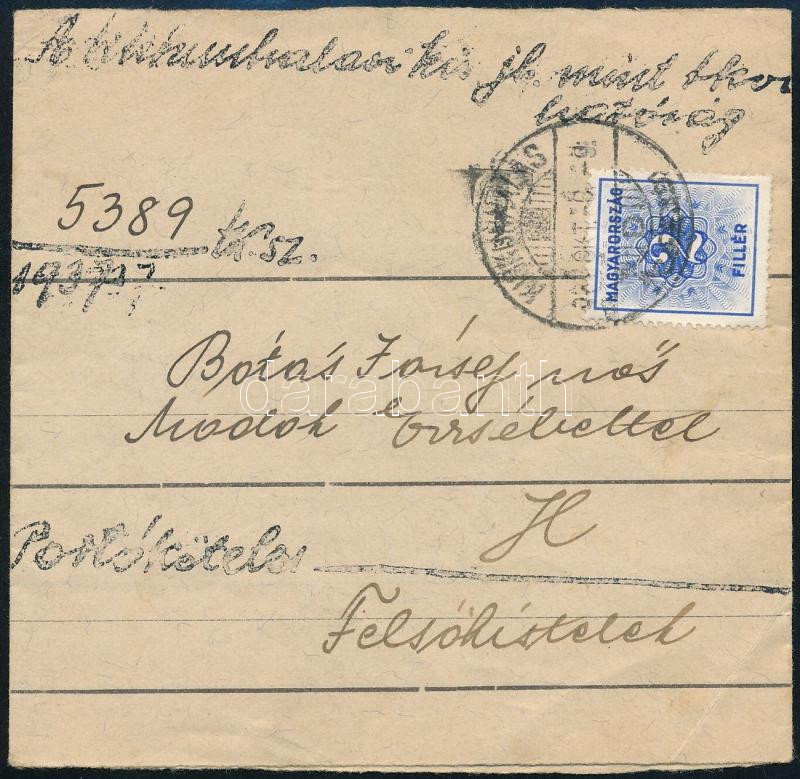 A kiskunhalasi kir. jb. mint tkvi
hatóság
5389 tk. sz.
1937
KISKUNHALAS
MAGYARORSZÁG
32
FILLÉR
Botás József nős
Modok Erzsébettel
H
Portóköteles
Felsőkistelek
darabanth